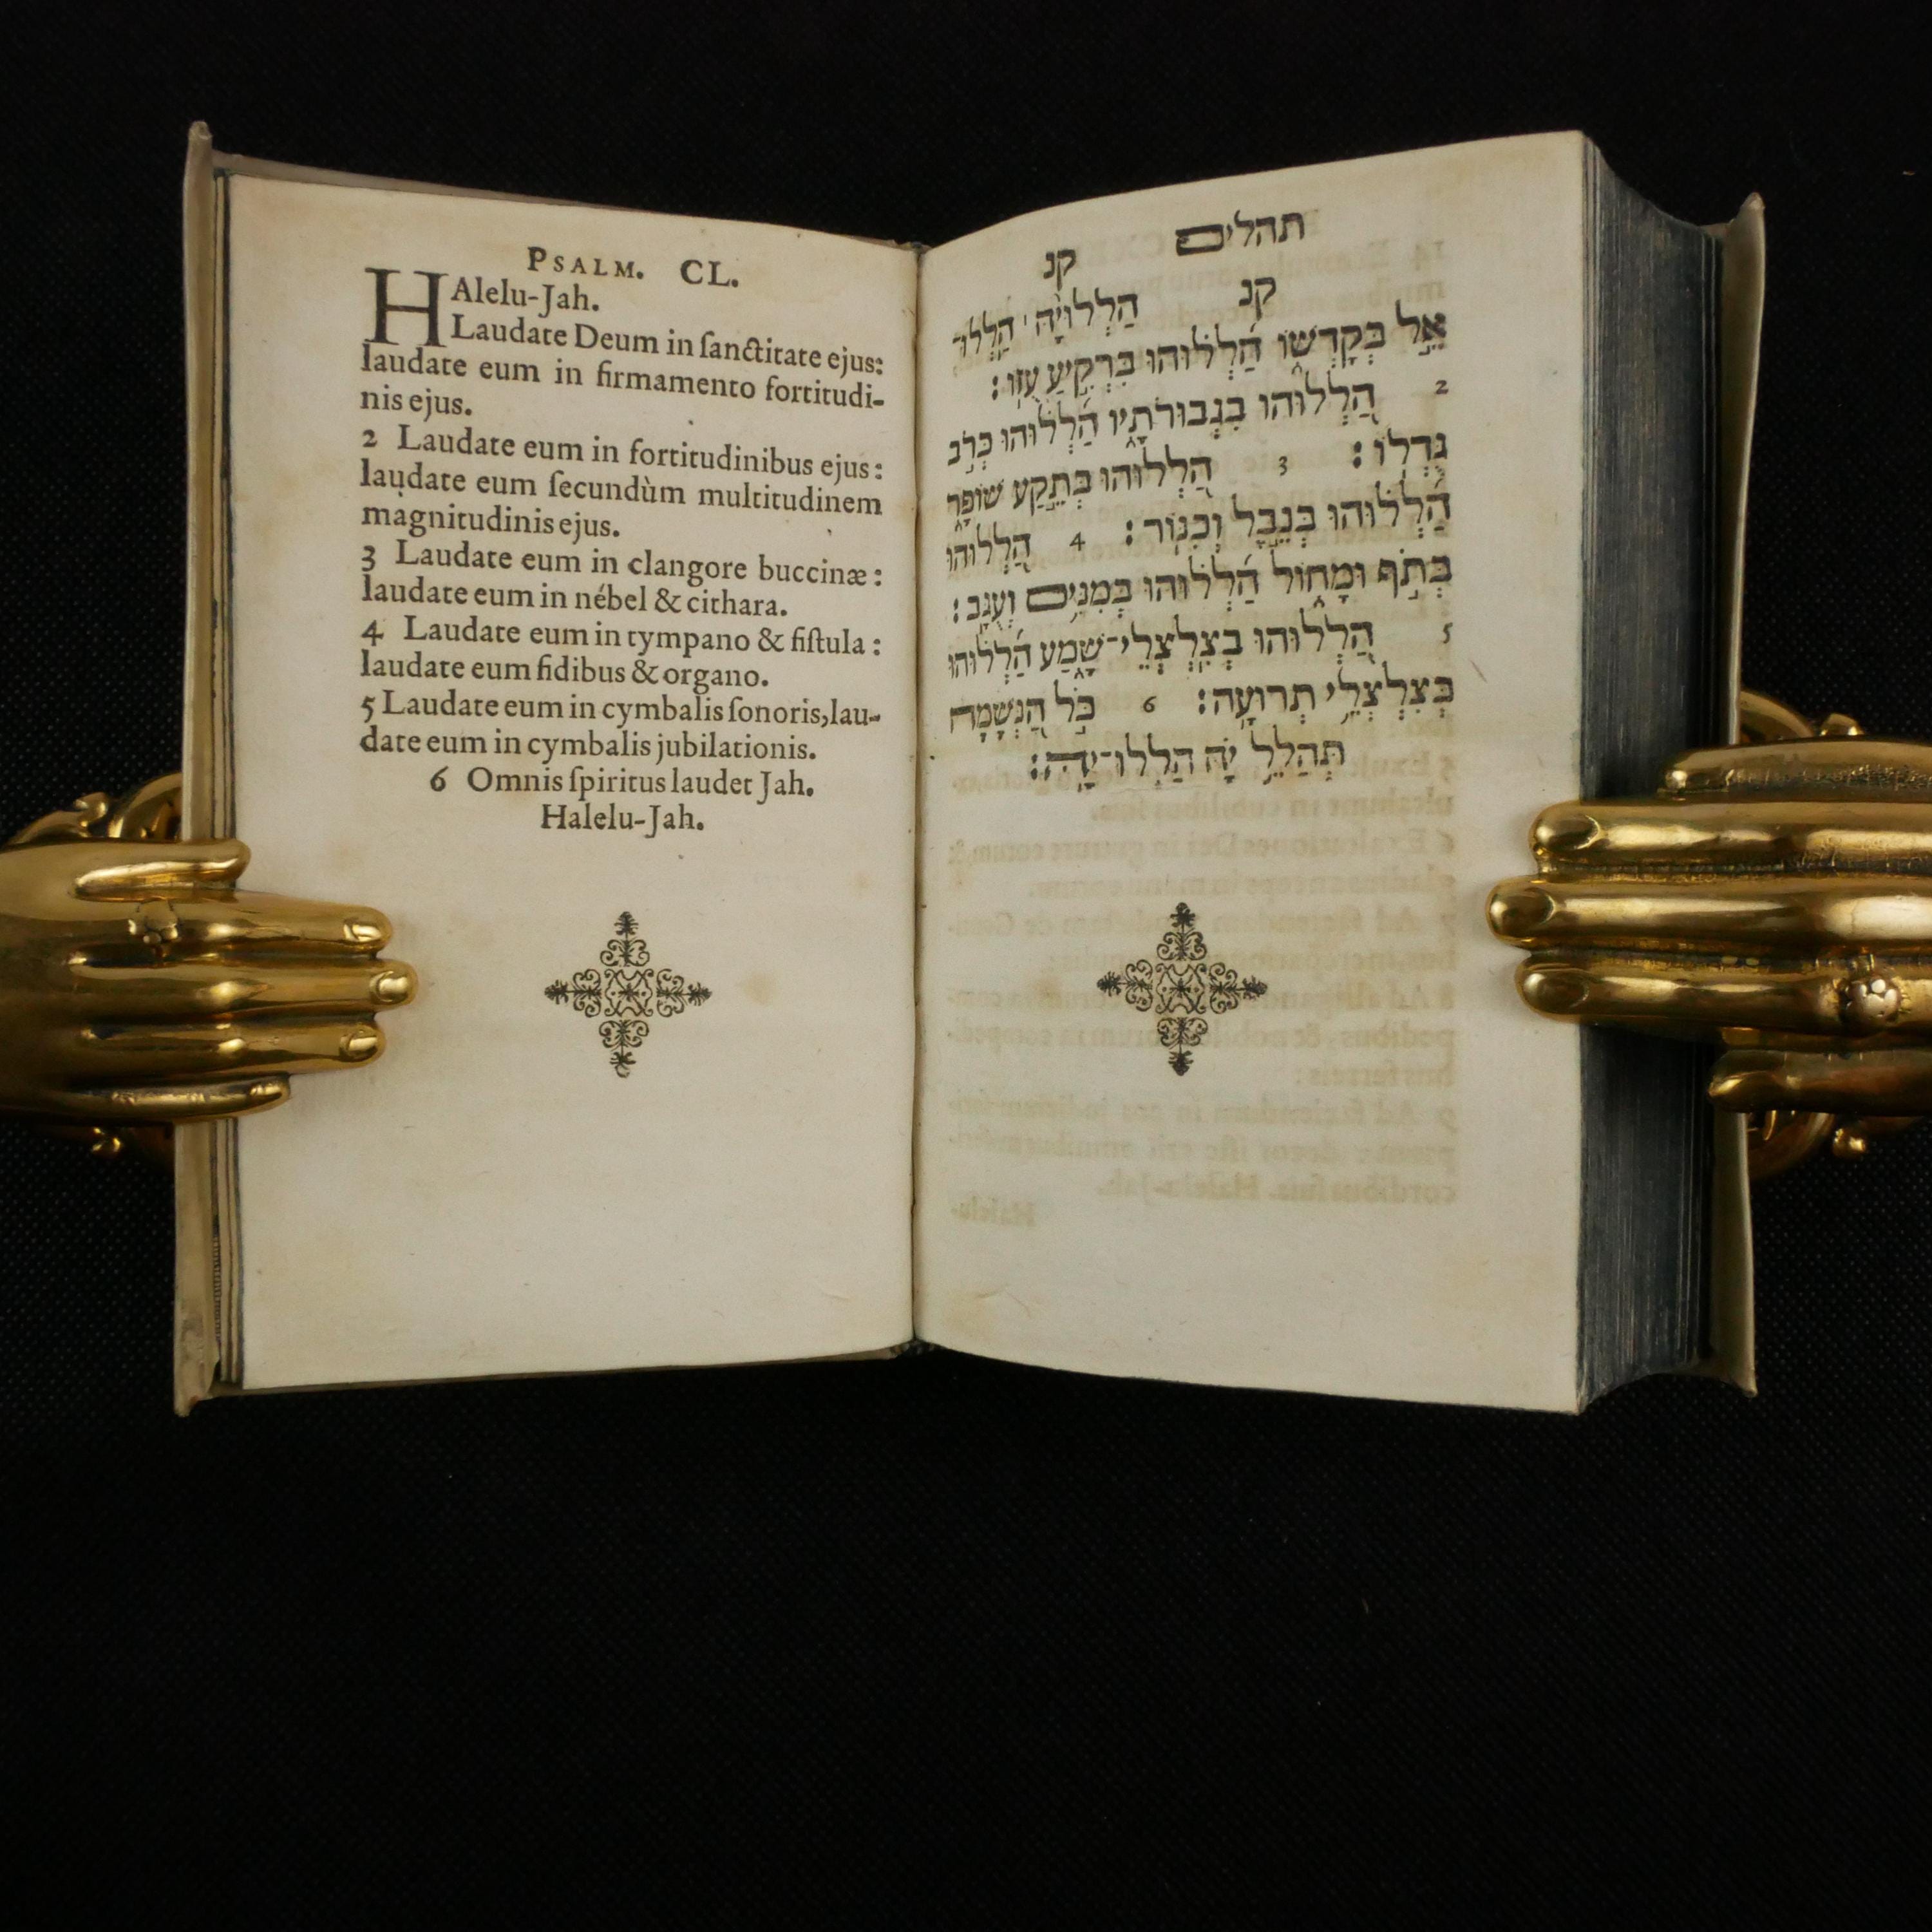 PSALM. CL.
HAlelu-Jah.
Laudate Deum in ſanctitate ejus:
laudate eum in firmamento fortitudi-
nis ejus.
2 Laudate eum in fortitudinibus ejus:
laudate eum ſecundùm multitudinem
magnitudinis ejus.
3 Laudate eum in clangore buccinæ:
laudate eum in nébel & cithara.
4 Laudate eum in tympano & fiſtula:
laudate eum fidibus & organo.
5 Laudate eum in cymbalis ſonoris, lau-
date eum in cymbalis jubilationis.
6 Omnis ſpiritus laudet Jah.
Halelu-Jah.
תהלים קנ
קנ הַלְלוּיָ֨הּ ׀ הַֽלְלוּ־
אֵ֥ל בְּקָדְשׁ֑וֹ הַ֝לְל֗וּהוּ בִּרְקִ֥יעַ עֻזּֽוֹ׃
2 הַֽלְל֥וּהוּ בִגְבוּרֹתָ֑יו הַ֝לְל֗וּהוּ כְּרֹ֣ב
גֻּדְלֽוֹ׃ 3 הַֽ֭לְלוּהוּ בְּתֵ֣קַע שׁוֹפָ֑ר
הַ֝לְל֗וּהוּ בְּנֵ֣בֶל וְכִנּֽוֹר׃ 4 הַֽ֭לְלוּהוּ
בְּתֹ֣ף וּמָח֑וֹל הַ֝לְל֗וּהוּ בְּמִנִּ֥ים וְעֻגָֽב׃
5 הַֽלְל֥וּהוּ בְצִלְצְלֵי־שָׁ֑מַע הַ֝לְל֗וּהוּ
בְּֽצִלְצְלֵ֥י תְרוּעָֽה׃ 6 כֹּ֣ל הַ֭נְּשָׁמָה
תְּהַלֵּ֥ל יָ֗הּ הַֽלְלוּ־יָֽהּ׃